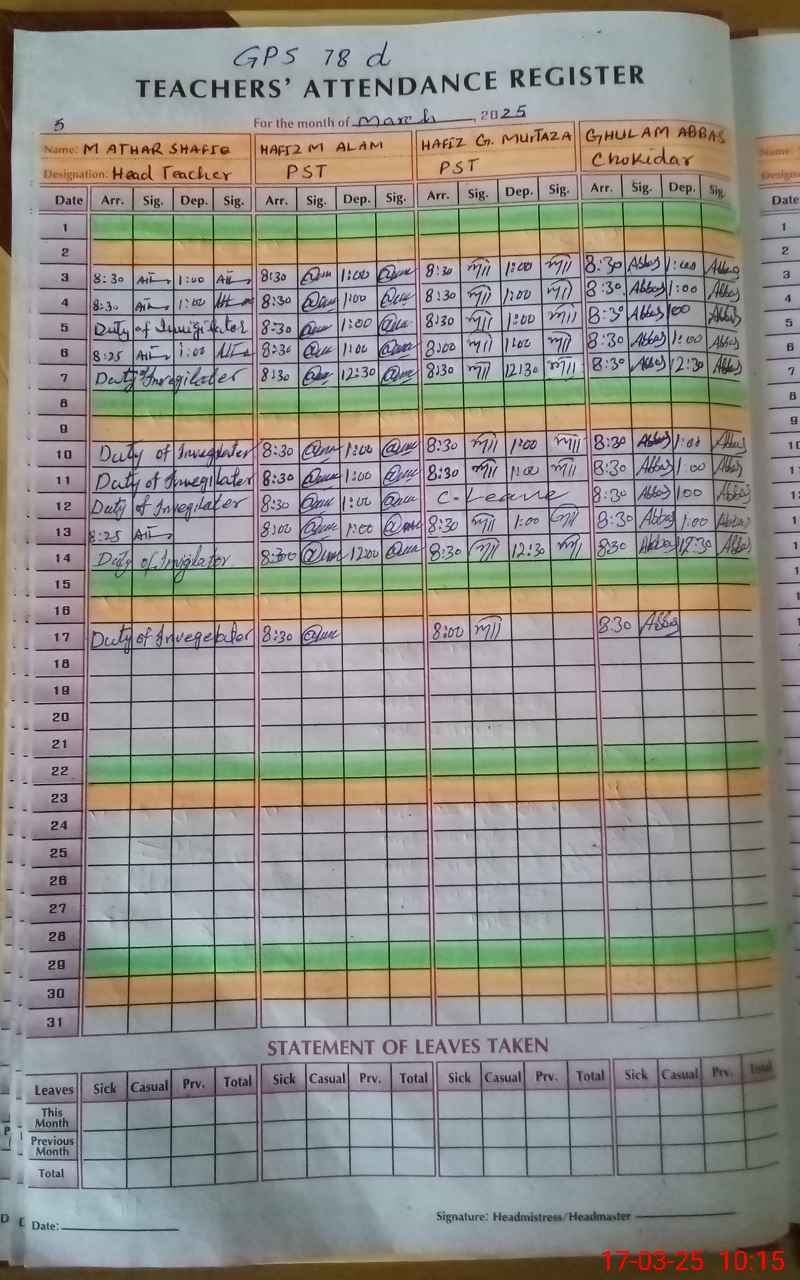 GPS 78 d
TEACHERS' ATTENDANCE REGISTER
5 For the month of March, 2025
Name: M ATHAR SHAFIQ HAFIZ M ALAM HAFIZ G. MURTAZA GHULAM ABBAS
Designation: Head Teacher PST PST Chokidar
Date Arr. Sig. Dep. Sig. Arr. Sig. Dep. Sig. Arr. Sig. Dep. Sig. Arr. Sig. Dep. Sig. Date
1
2
3 8:30 1:00 8:30 1:00 8:30 1:00 8:30 Abbas 1:00 Abbas
4 8:30 1:00 8:30 1:00 8:30 1:00 8:30 Abbas 1:00 Abbas
5 Duty of Invigilator 8:30 1:00 8:30 1:00 8:30 Abbas 1:00 Abbas
6 8:25 1:00 8:30 1:00 8:00 1:00 8:30 Abbas 1:00 Abbas
7 Duty of Invegilater 8:30 12:30 8:30 12:30 8:30 Abbas 12:30 Abbas
8
9
10 Duty of Invegilater 8:30 1:00 8:30 1:00 8:30 Abbas 1:00 Abbas
11 Duty of Invegilater 8:30 1:00 8:30 1:00 8:30 Abbas 1:00 Abbas
12 Duty of Invegilater 8:30 1:00 C-Leave 8:30 Abbas 1:00 Abbas
13 8:25 8:00 1:00 8:30 1:00 8:30 Abbas 1:00 Abbas
14 Duty of Invigilator 8:30 12:00 8:30 12:30 8:30 Abbas 12:30 Abbas
15
16
17 Duty of Invegelater 8:30 8:00 8:30 Abbas
18
19
20
21
22
23
24
25
26
27
28
29
30
31
STATEMENT OF LEAVES TAKEN
Leaves Sick Casual Prv. Total Sick Casual Prv. Total Sick Casual Prv. Total Sick Casual Prv. Total
This Month
Previous Month
Total
Date: Signature: Headmistress/Headmaster
17-03-25 10:15